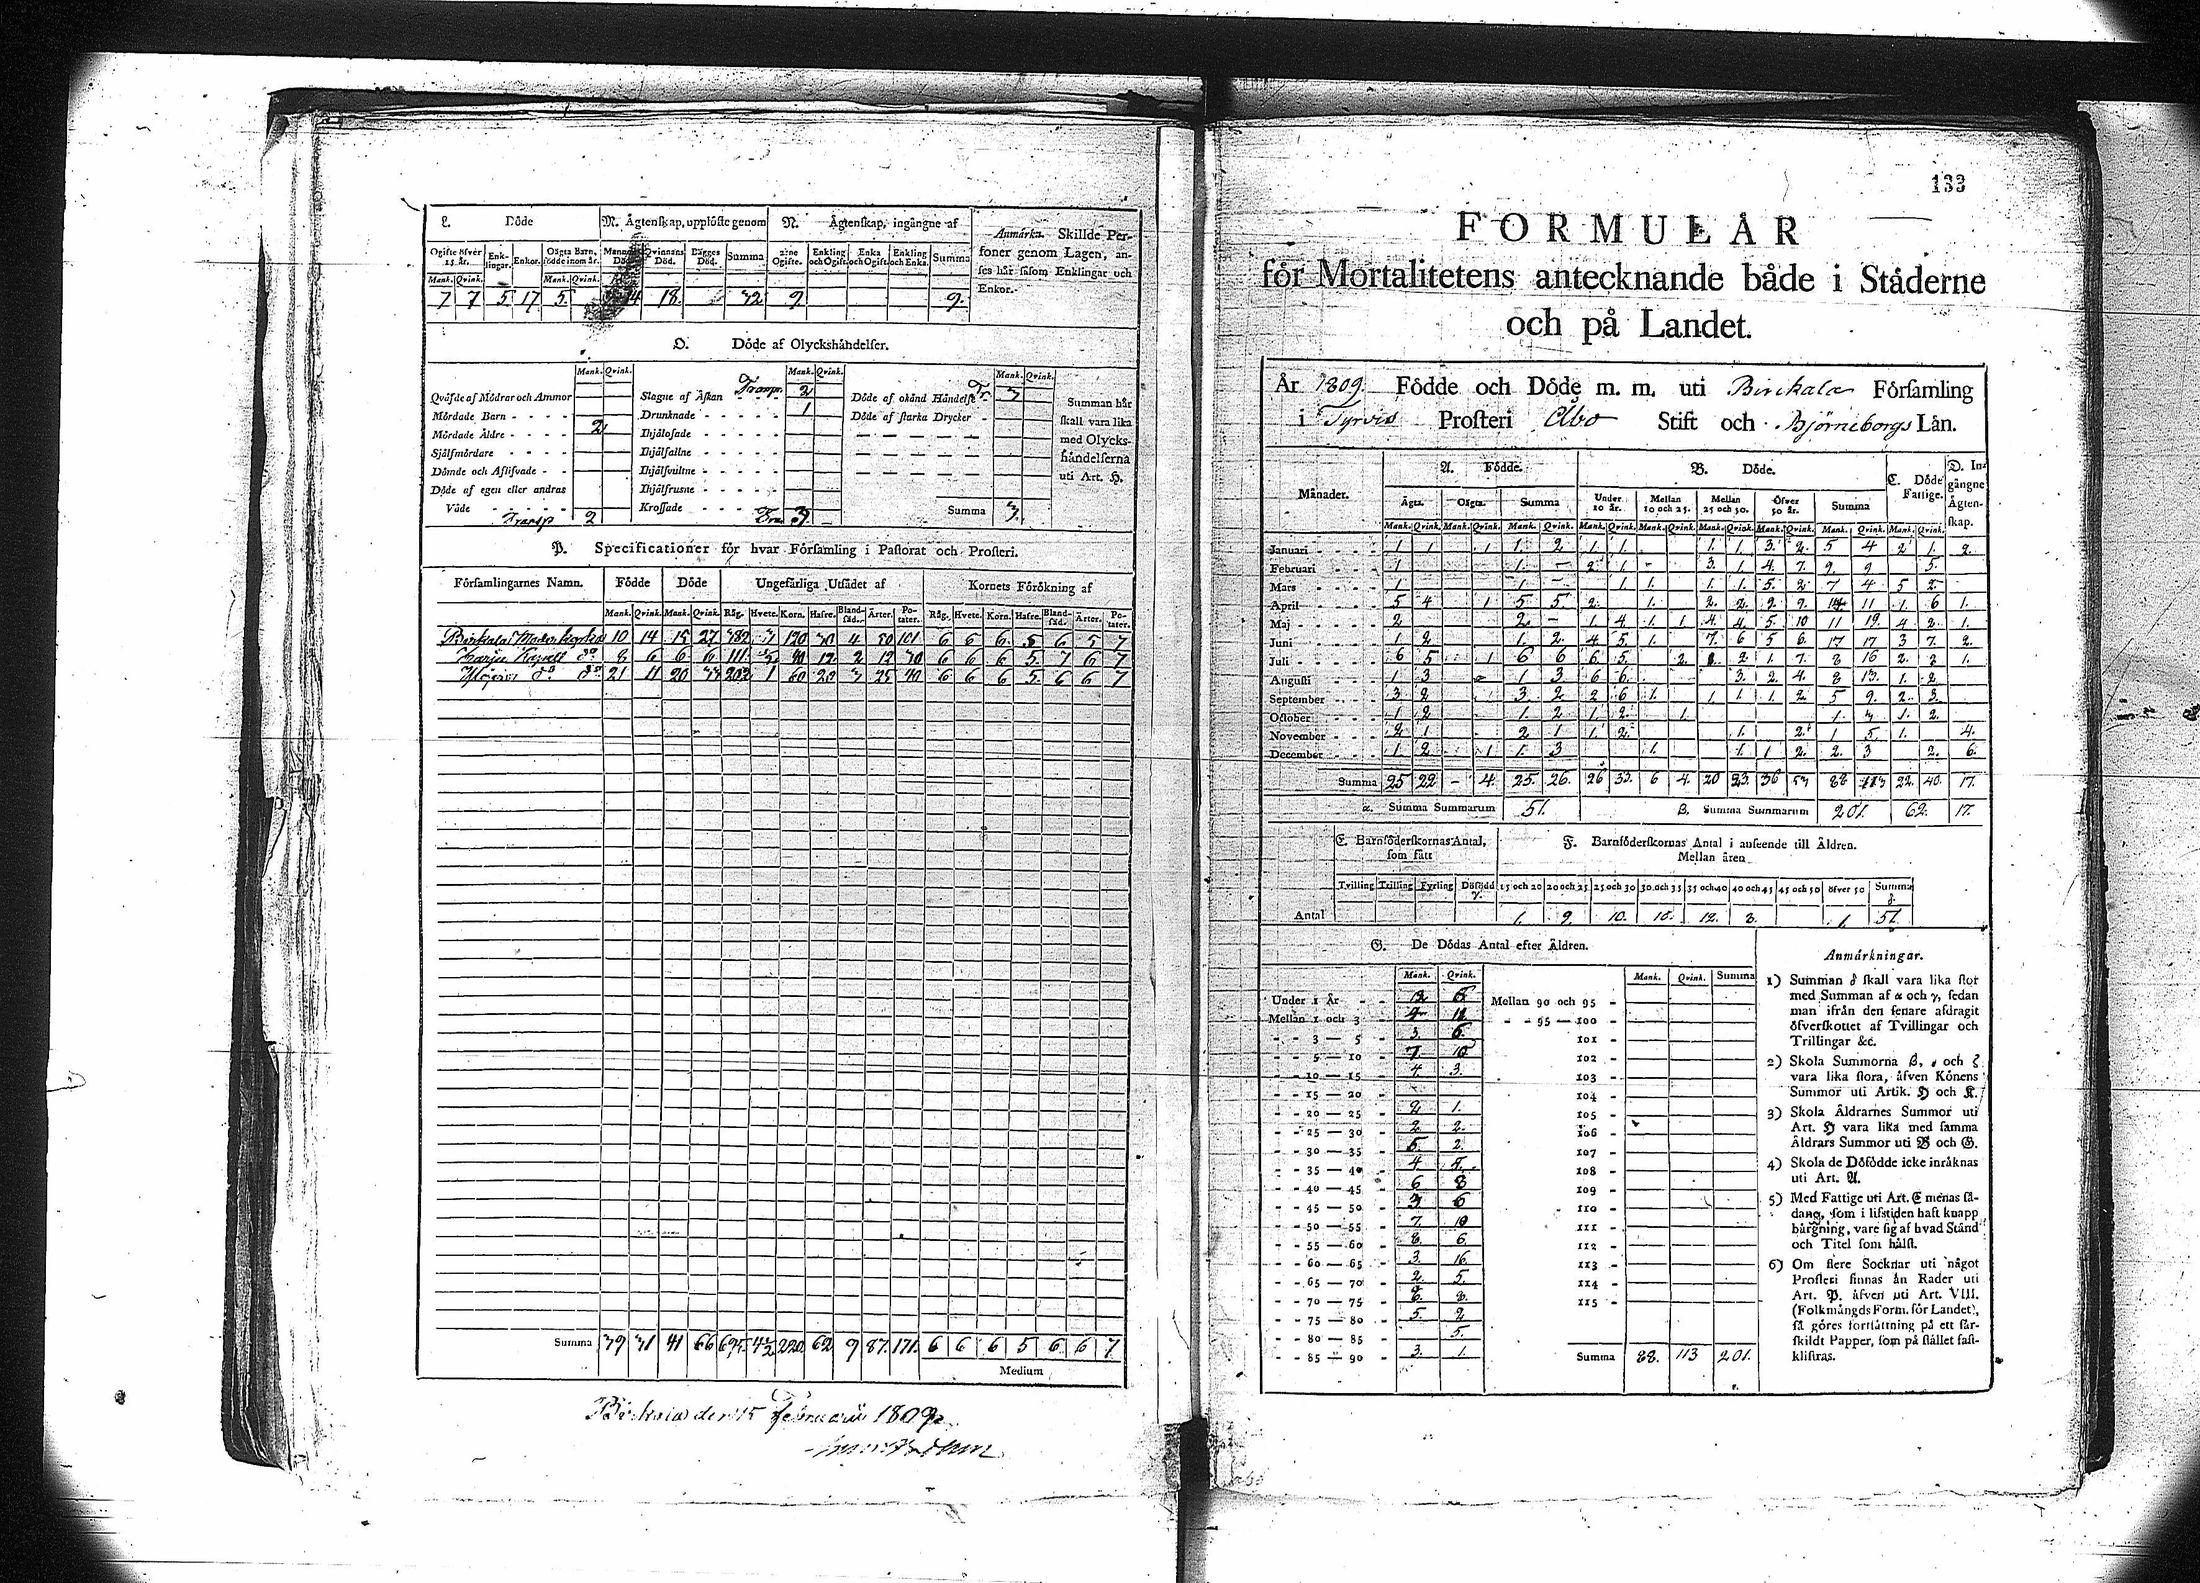 L. Döde
M. Ågtenskap, upplöste genom
N. Ågtenskap, ingångne af
Anmärkn. Skillde Personer genom Lagen, anses hår såsom Enklingar och Enkor.
Ogifte öfver 15 år. Enklingar. Enkor. Oågta Barn, födde inom år. Mannens Död. Qvinnans Död. Bågges Död. Summa 2:ne Ogifte. Enkling och Ogift. Enka och Ogift. Enkling och Enka. Summa
Mank. Qvink. Mank. Qvink.
7 7 5 17 5 14 18 32 9 9
O. Döde af Olyckshåndelser.
Mank. Qvink. Mank. Qvink. Mank. Qvink.
Qvåfde af Mödrar och Ammor
Mördade Barn - - - -
Mördade Åldre - - - - 2
Sjålfmördare - - - -
Dömde och Aflifvade - -
Döde af egen eller andras
Våde - - - - Transp 2
Slagne af Åskan Transp. 2
Drunknade - - - - 1
Ihjålosade - - - -
Ihjålfallne - - - -
Ihjålsvultne - - - -
Ihjålfrusne - - - -
Krossade - - - - Tra. 3
Döde af okånd Håndelse Tr. 3
Döde af starka Drycker -
Summa 3
Summan hår
skall vara lika
med Olycks-
håndelserna
uti Art. H.
P. Specificationer för hvar Församling i Pastorat och Prosteri.
Församlingarnes Namn. Födde Döde Ungefårliga Utsådet af Kornets Förökning af
Mank. Qvink. Mank. Qvink. Råg. Hvete. Korn. Hafre. Blandsåd. Årter. Potater. Råg. Hvete. Korn. Hafre. Blandsåd. Årter. Potater.
Birkala Moderkyrka 10 14 15 27 382 3 120 30 4 50 101 6 6 6 5 6 5 7
Harju Kapell 8 6 6 6 111 90 12 2 12 30 6 6 6 5 7 6 7
21 11 20 33 202 1 60 20 3 25 40 6 6 6 5 6 6 7
Summa 39 31 41 66 695 220 62 9 87 171 6 6 6 5 6 6 7
Medium
Birkala den 15 Februarii 1809
133
FORMULÅR
för Mortalitetens antecknande både i Ståderne
och på Landet.
År 1809. Födde och Döde m. m. uti Birckala Församling
i Tyrvis Prosteri Åbo Stift och Björneborgs Lån.
Månader. A. Födde. B. Döde. C. Döde Fattige. D. Ingångne Ågtenskap.
Ågta. Oågta. Summa Under 10 år. Mellan 10 och 25. Mellan 25 och 50. Öfver 50 år. Summa
Mank. Qvink. Mank. Qvink. Mank. Qvink. Mank. Qvink. Mank. Qvink. Mank. Qvink. Mank. Qvink. Mank. Qvink. Mank. Qvink.
Januari - - - - 1 1 1 1 2 1 1 1 1 3 2 5 4 2 1 2
Februari - - - - 1 1 - 2 1 - 3 1 4 7 9 9 5
Mars - - - - 1 1 - 1 1 1 1 5 2 7 4 5 2
April - - - - 5 4 1 5 5 2 1 2 2 9 9 14 11 1 6 1
Maj - - - - 2 2 - 1 4 1 1 4 4 5 10 11 19 4 2 1
Juni - - - - 1 2 1 2 4 5 1 7 6 5 6 17 17 3 7 2
Juli - - - - 6 5 1 6 6 6 5 2 1 2 1 7 8 16 2 2 1
Augusti - - - - 1 3 1 3 6 6 3 2 4 8 13 1 2
September - - - - 3 2 3 2 2 6 1 1 1 1 2 5 9 2 3
October - - - - 1 2 1 2 1 2 1 1 3 1 2
November - - - - 2 1 2 1 1 2 1 2 1 5 1 4
December - - - - 1 2 1 1 3 1 1 1 2 2 3 2 6
Summa 25 22 - 4 25 26 26 33 6 4 20 23 36 53 88 113 22 40 17
α. Summa Summarum 51. β. Summa Summarum 201. 62. 17.
E. Barnföderskornas Antal, som fått
F. Barnföderskornas Antal i anseende till Åldren.
Mellan åren
Tvilling Trilling Fyrling Dödfödd γ. 15 och 20 20 och 25 25 och 30 30 och 35 35 och 40 40 och 45 45 och 50 öfver 50 Summa δ.
Antal 1. 9. 10. 10. 12. 8. 1. 51.
G. De Dödas Antal efter Åldren.
Mank. Qvink. Mank. Qvink. Summa
Under 1 År - - 12 5
Mellan 1 och 3 - 4 12
- - 3 — 5 - 3 6
- - 5 — 10 - 7 10
- - 10 — 15 - 4 3
- - 15 — 20 - -
- - 20 — 25 - 2 1
- - 25 — 30 - 2 2
- - 30 — 35 - 5 2
- - 35 — 40 - 4 5
- - 40 — 45 - 6 8
- - 45 — 50 - 3 6
- - 50 — 55 - 7 10
- - 55 — 60 - 8 6
- - 60 — 65 - 3 16
- - 65 — 70 - 2 5
- - 70 — 75 - 8 8
- - 75 — 80 - 5 2
- - 80 — 85 - 5
- - 85 — 90 - 3 1
Mellan 90 och 95 -
- - 95 — 100 -
101 -
102 -
103 -
104 -
105 -
106 -
107 -
108 -
109 -
110 -
111 -
112 -
113 -
114 -
115 -
Summa 88. 113 201.
Anmårkningar.
1) Summan δ skall vara lika stor
med Summan af α och γ, sedan
man ifrån den senare afdragit
öfverskottet af Tvillingar och
Trillingar &c.
2) Skola Summorna β, ε och ζ
vara lika stora, åfven Könens
Summor uti Artik. H och K.
3) Skola Åldrarnes Summor uti
Art. H vara lika med samma
Åldrars Summor uti B och G.
4) Skola de Döfödde icke inråknas
uti Art. A.
5) Med Fattige uti Art. C menas så-
dana, som i lifstiden haft knapp
bårgning, vare sig af hvad Stånd
och Titel som hålst.
6) Om flere Socknar uti något
Prosteri finnas ån Rader uti
Art. P. åfven uti Art. VIII.
(Folkmångds Form. för Landet),
så göres fortsåttning på ett sår-
skildt Papper, som på stållet fast-
klistras.